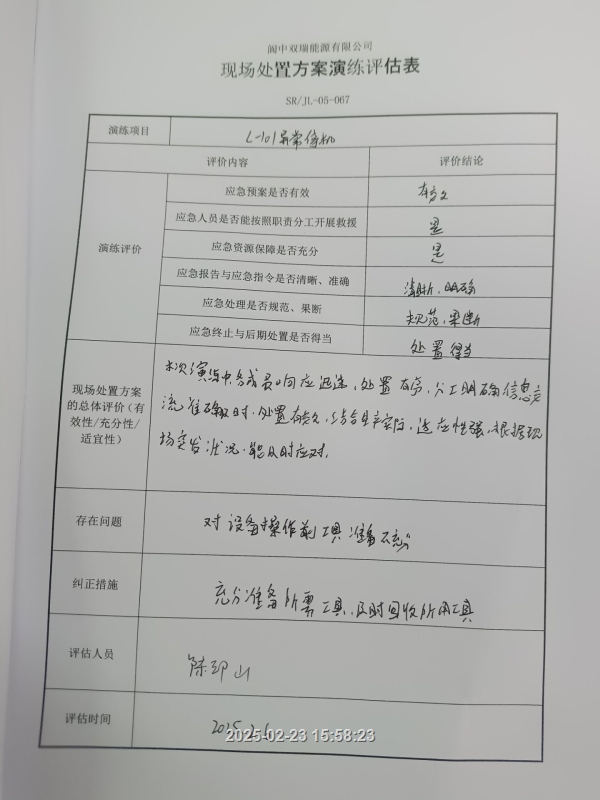 阆中双瑞能源有限公司
现场处置方案演练评估表
SR/JL-05-067
演练项目 L-101异常停机
评价内容 评价结论
演练评价
应急预案是否有效 有效
应急人员是否能按照职责分工开展救援 是
应急资源保障是否充分 是
应急报告与应急指令是否清晰、准确 清晰、明确
应急处理是否规范、果断 规范、果断
应急终止与后期处置是否得当 处置得当
现场处置方案
的总体评价（有
效性/充分性/
适宜性）
本次演练中各成员响应迅速，处置有序，分工明确信息交
流准确及时，处置有效，结合生产实际，适应性强，根据现
场突发状况，能及时应对。
存在问题 对设备操作前工具准备不充分
纠正措施 充分准备所需工具、及时回收所用工具
评估人员 陈邛山
评估时间 2025.2.
2025-02-23 15:58:23